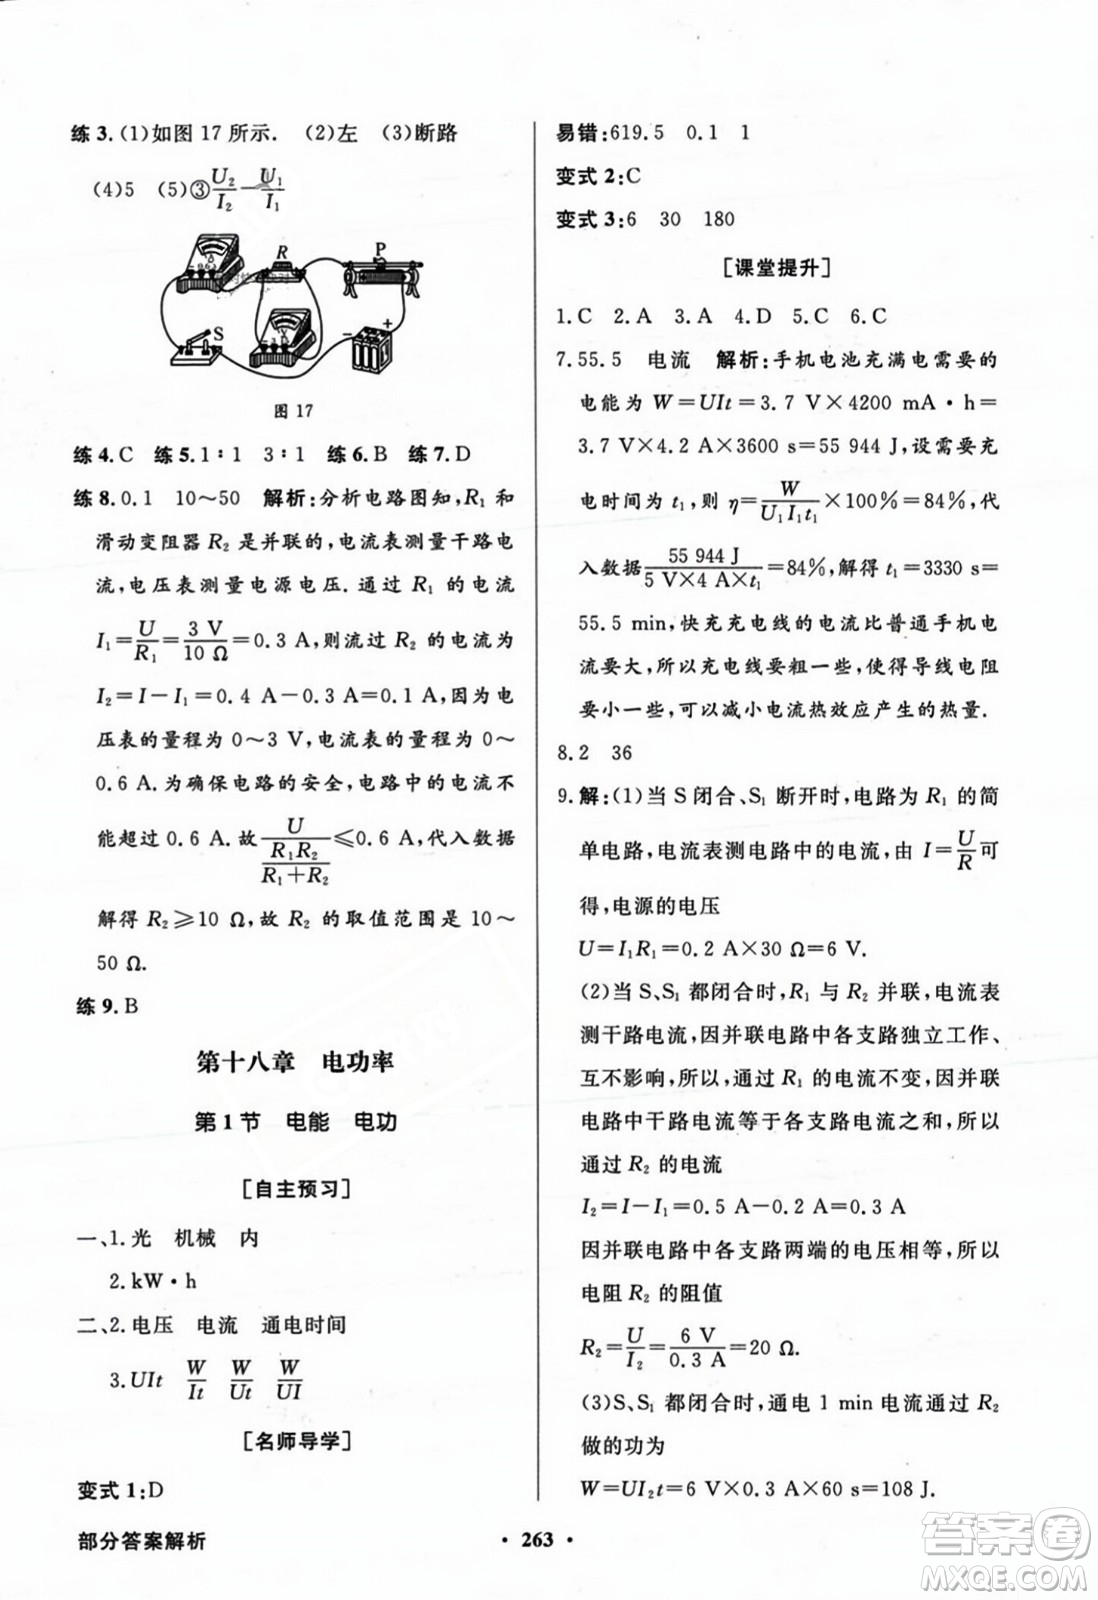 练 3.(1)如图 17 所示. (2)左 (3)断路
(4)5 (5)③U₂/I₂−U₁/I₁
R
P
S
图 17
练 4.C 练 5.1∶1 3∶1 练 6.B 练 7.D
练 8.0.1 10～50 解析:分析电路图知,R₁ 和
滑动变阻器 R₂ 是并联的,电流表测量干路电
流,电压表测量电源电压.通过 R₁ 的电流
I₁=U/R₁=3 V/10 Ω=0.3 A,则流过 R₂ 的电流为
I₂=I−I₁=0.4 A−0.3 A=0.1 A,因为电
压表的量程为 0～3 V,电流表的量程为 0～
0.6 A.为确保电路的安全,电路中的电流不
能超过 0.6 A.故U/(R₁R₂/(R₁+R₂))≤0.6 A,代入数据
解得 R₂≥10 Ω,故 R₂ 的取值范围是 10～
50 Ω.
练 9.B
第十八章 电功率
第 1 节 电能 电功
[自主预习]
一、1.光 机械 内
2.kW·h
二、2.电压 电流 通电时间
3.UIt W/It W/Ut W/UI
[名师导学]
变式 1:D
易错:619.5 0.1 1
变式 2:C
变式 3:6 30 180
[课堂提升]
1.C 2.A 3.A 4.D 5.C 6.C
7.55.5 电流 解析:手机电池充满电需要的
电能为 W=UIt=3.7 V×4200 mA·h=
3.7 V×4.2 A×3600 s=55 944 J,设需要充
电时间为 t₁,则 η=W/U₁I₁t₁×100%=84%,代
入数据55 944 J/5 V×4 A×t₁=84%,解得 t₁=3330 s=
55.5 min,快充充电线的电流比普通手机电
流要大,所以充电线要粗一些,使得导线电阻
要小一些,可以减小电流热效应产生的热量.
8.2 36
9.解:(1)当 S闭合、S₁ 断开时,电路为 R₁ 的简
单电路,电流表测电路中的电流,由 I=U/R可
得,电源的电压
U=I₁R₁=0.2 A×30 Ω=6 V.
(2)当 S、S₁ 都闭合时,R₁ 与 R₂ 并联,电流表
测干路电流,因并联电路中各支路独立工作、
互不影响,所以,通过 R₁ 的电流不变,因并联
电路中干路电流等于各支路电流之和,所以
通过 R₂ 的电流
I₂=I−I₁=0.5 A−0.2 A=0.3 A
因并联电路中各支路两端的电压相等,所以
电阻 R₂ 的阻值
R₂=U/I₂=6 V/0.3 A=20 Ω.
(3)S、S₁ 都闭合时,通电 1 min 电流通过 R₂
做的功为
W=UI₂t=6 V×0.3 A×60 s=108 J.
部分答案解析
• 263 •
答案圈
MXQE.COM